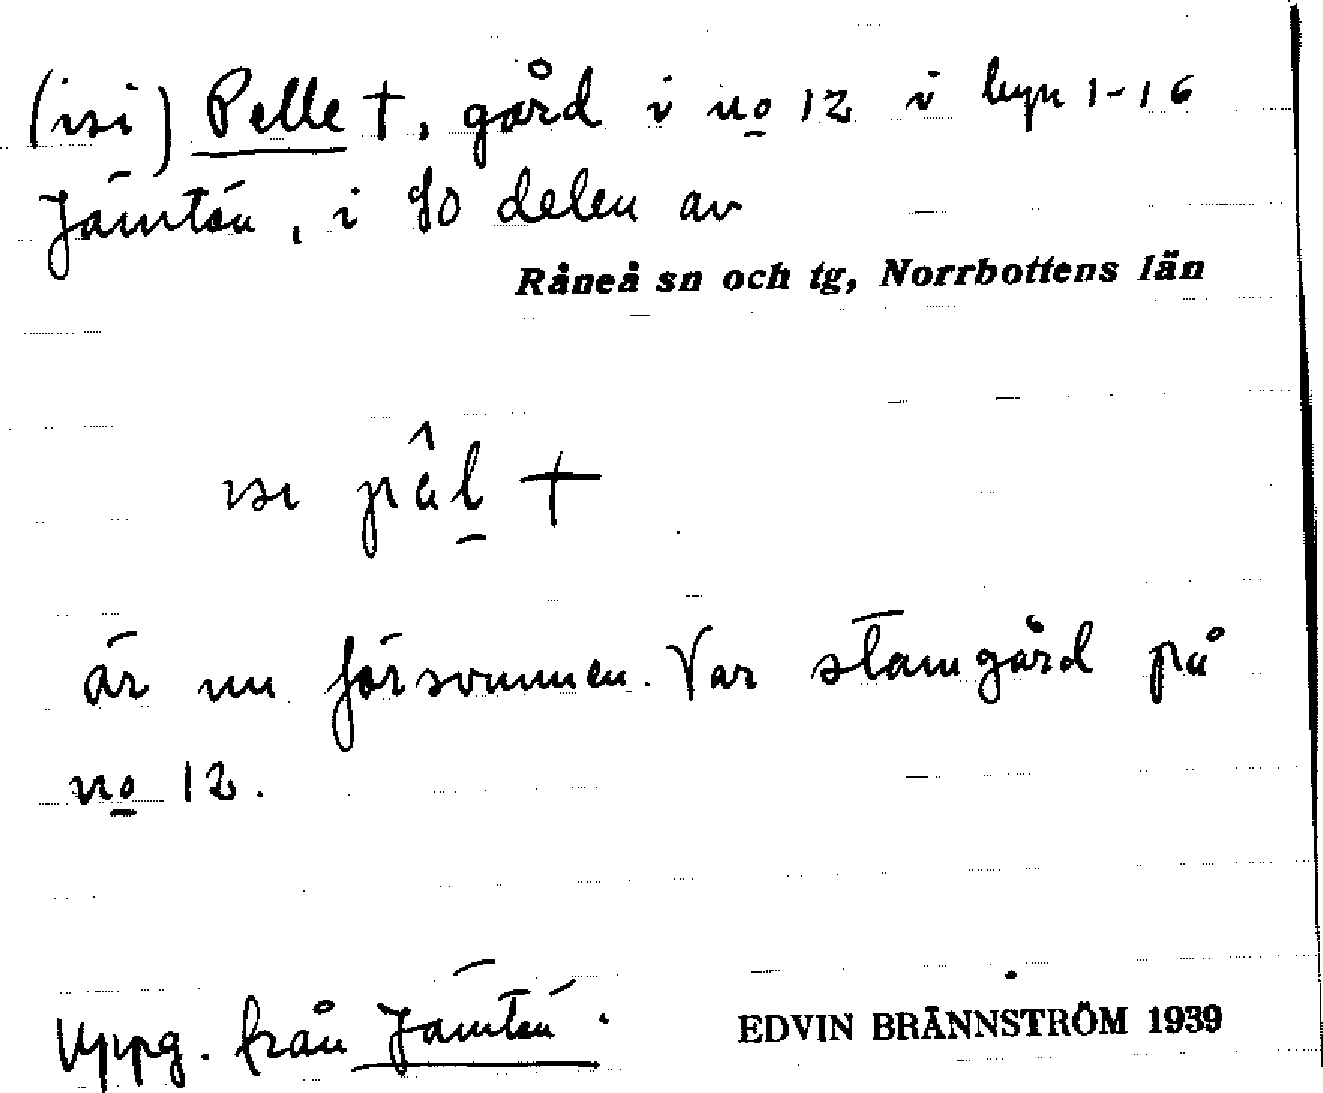 (isi) Pelle †, gård i no 12 i byn 1-16
Jämtön, i SO delen av
Råneå sn och tg, Norrbottens län
isi pâl †
är nu försvunnen. Var stamgård på
no 12.
Uppg. från Jämtön.
EDVIN BRÄNNSTRÖM 1939